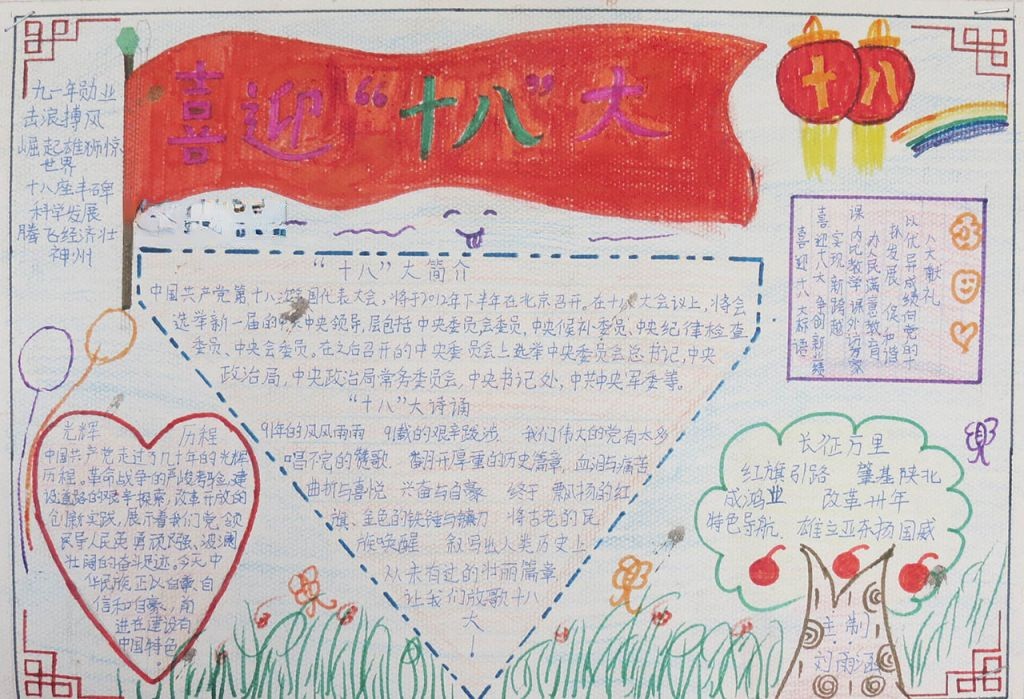 喜迎“十八”大
十八
九一年勋业
击浪搏风
崛起雄狮惊
世界
十八座丰碑
科学发展
腾飞经济壮
神州
“十八”大简介
中国共产党第十八次全国代表大会,将于2012年下半年在北京召开。在十八大会议上,将会
选举新一届的中共中央领导,层包括中央委员会委员,中央候补委员,中央纪律检查
委员、中央会委员。在之后召开的中央委员会上选举中央委员会总书记,中央
政治局,中央政治局常务委员会,中央书记处,中共中央军委等。
“十八”大诗诵
91年的风风雨雨 91载的艰辛跋涉 我们伟大的党有太多
唱不完的赞歌 翻开厚重的历史篇章,血泪与痛苦
曲折与喜悦 兴奋与自豪 终于 飘扬的红
旗、金色的铁锤与镰刀 将古老的民
族唤醒 叙写出人类历史上
从未有过的壮丽篇章,
让我们放歌十八
大
八大献礼
以优异成绩向党的十
抓发展 促和谐
办人民满意教育
课内比教学课外访万家
实现新跨越
喜迎十八大 争创新业绩
喜迎十八大标语
光辉 历程
中国共产党走过了九十年的光辉
历程。革命战争的严峻考验,建
设道路的艰辛探索,改革开放的
创新实践,展示着我们党领
民导人民英勇顽强、波澜
壮阔的奋斗足迹。今天中
华民族正以自豪自
信和自豪,前
进在建设有
中国特色
长征万里
红旗引路 肇基陕北
成鸿业 改革卅年
特色导航 雄立亚东扬国威
主:制
刘雨涵